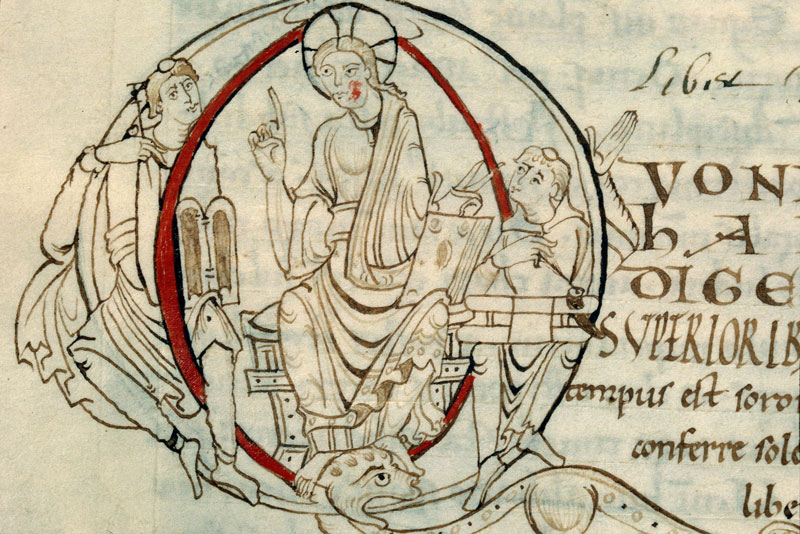 Liber
QVONI
hA
DIGE
SVPERIORIB
tempus est soro
conferre sole
libe